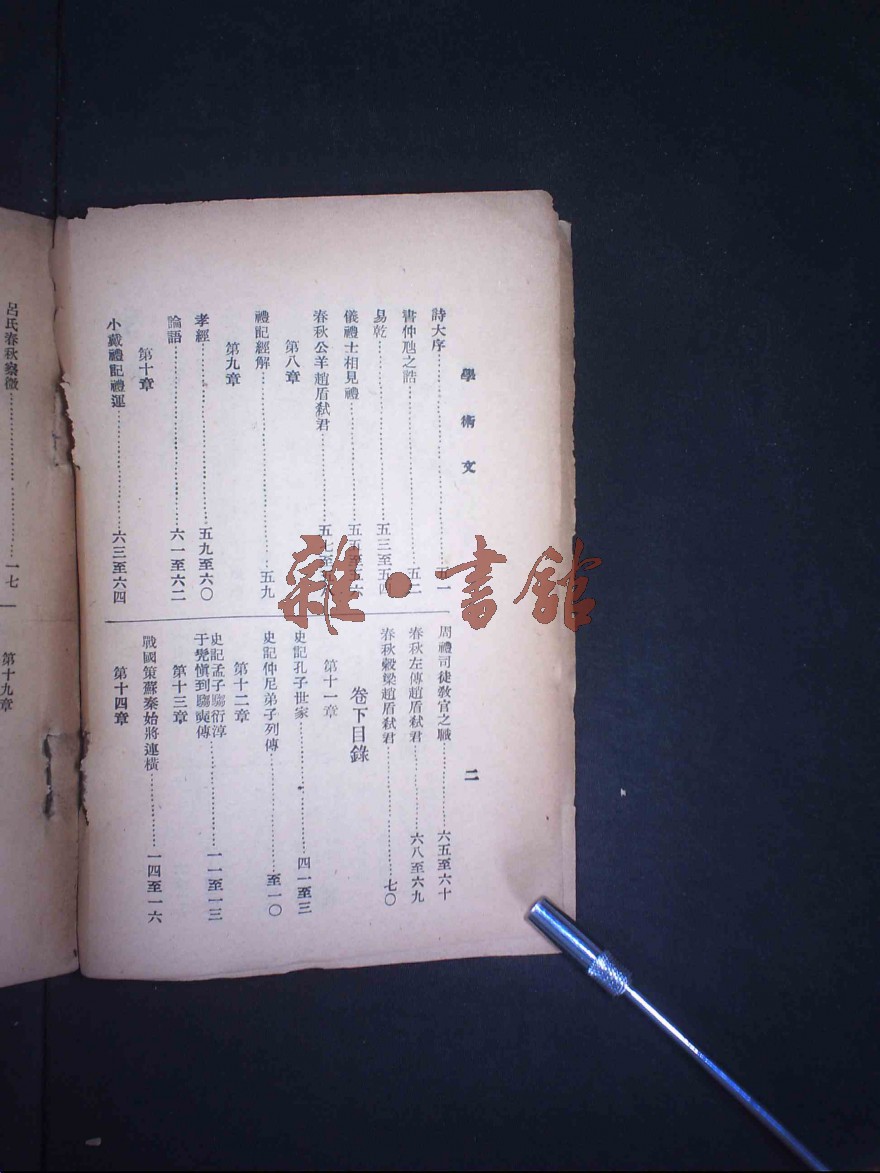 學術文
二
詩大序……………………五一
書仲虺之誥……………………五二
易乾……………………五三至五四
儀禮士相見禮……………………五五至五六
春秋公羊趙盾弒君……………………五七至五八
第八章
禮記經解……………………五九
第九章
孝經……………………五九至六〇
論語……………………六一至六二
第十章
小戴禮記禮運……………………六三至六四
周禮司徒敎官之職……………………六五至六十
春秋左傳趙盾弒君……………………六八至六九
春秋穀梁趙盾弒君……………………七〇
卷下目錄
第十一章
史記孔子世家……………………四一至三
史記仲尼弟子列傳……………………至一〇
第十二章
史記孟子騶衍淳
于髠愼到騶奭傳……………………一一至一三
第十三章
戰國策蘇秦始將連橫……………………一四至一六
第十四章
呂氏春秋察微……………………一七
第十九章
雜·書館